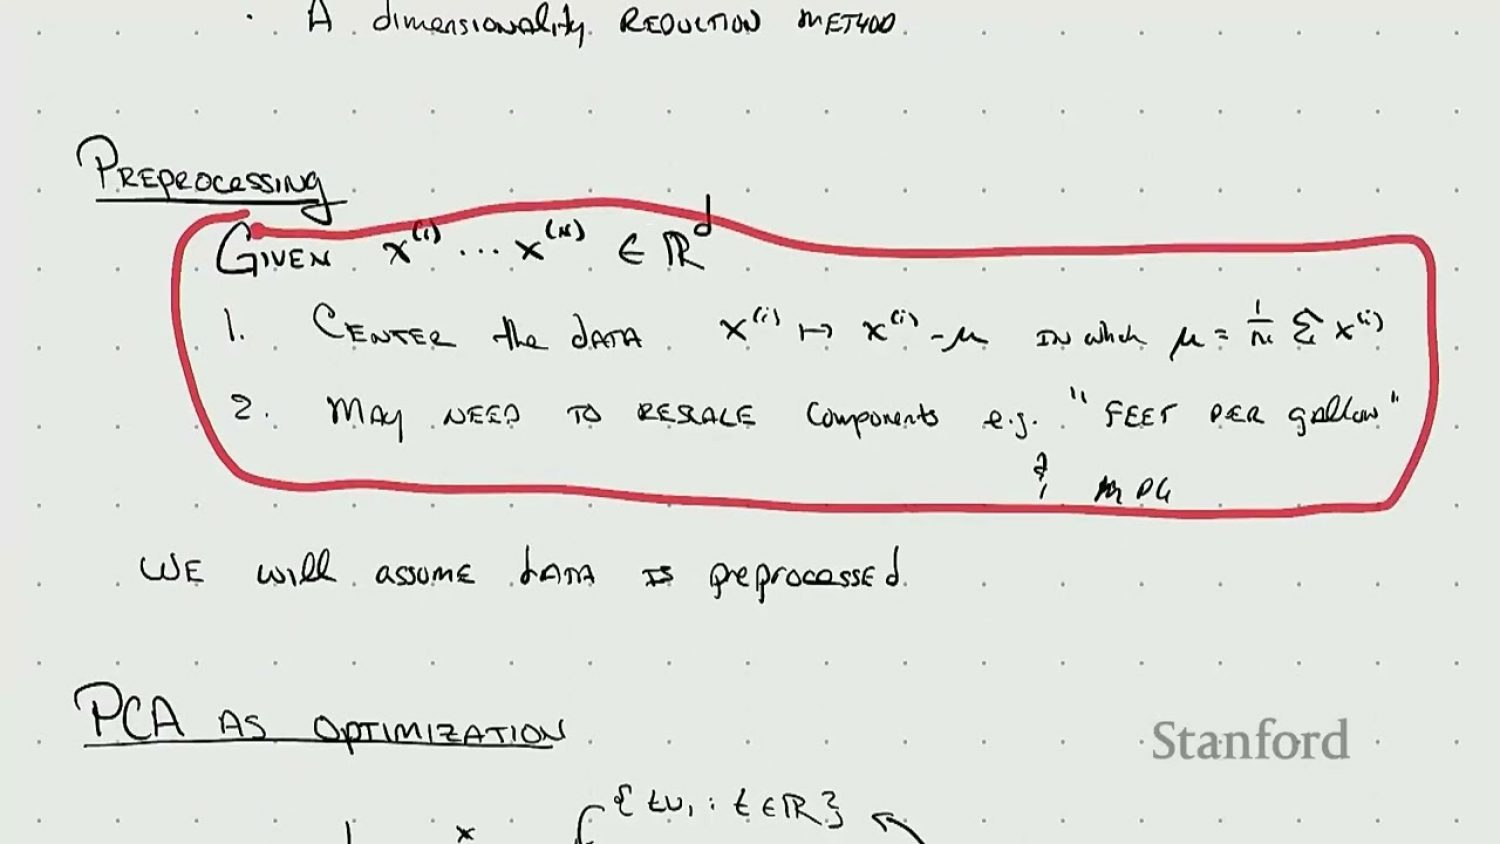 · A dimensionality REDUCTION METHOD.
PREPROCESSING
GIVEN x^(1) ... x^(n) ∈ ℝ^d
1. CENTER the DATA x^(i) ↦ x^(i) - μ IN which μ = 1/n Σ x^(i)
2. MAY NEED TO RESCALE Components e.g. "FEET PER gallon"
& MPG
WE will assume DATA IS preprocessed.
PCA AS OPTIMIZATION
Stanford
{tu₁ : t ∈ ℝ}
x